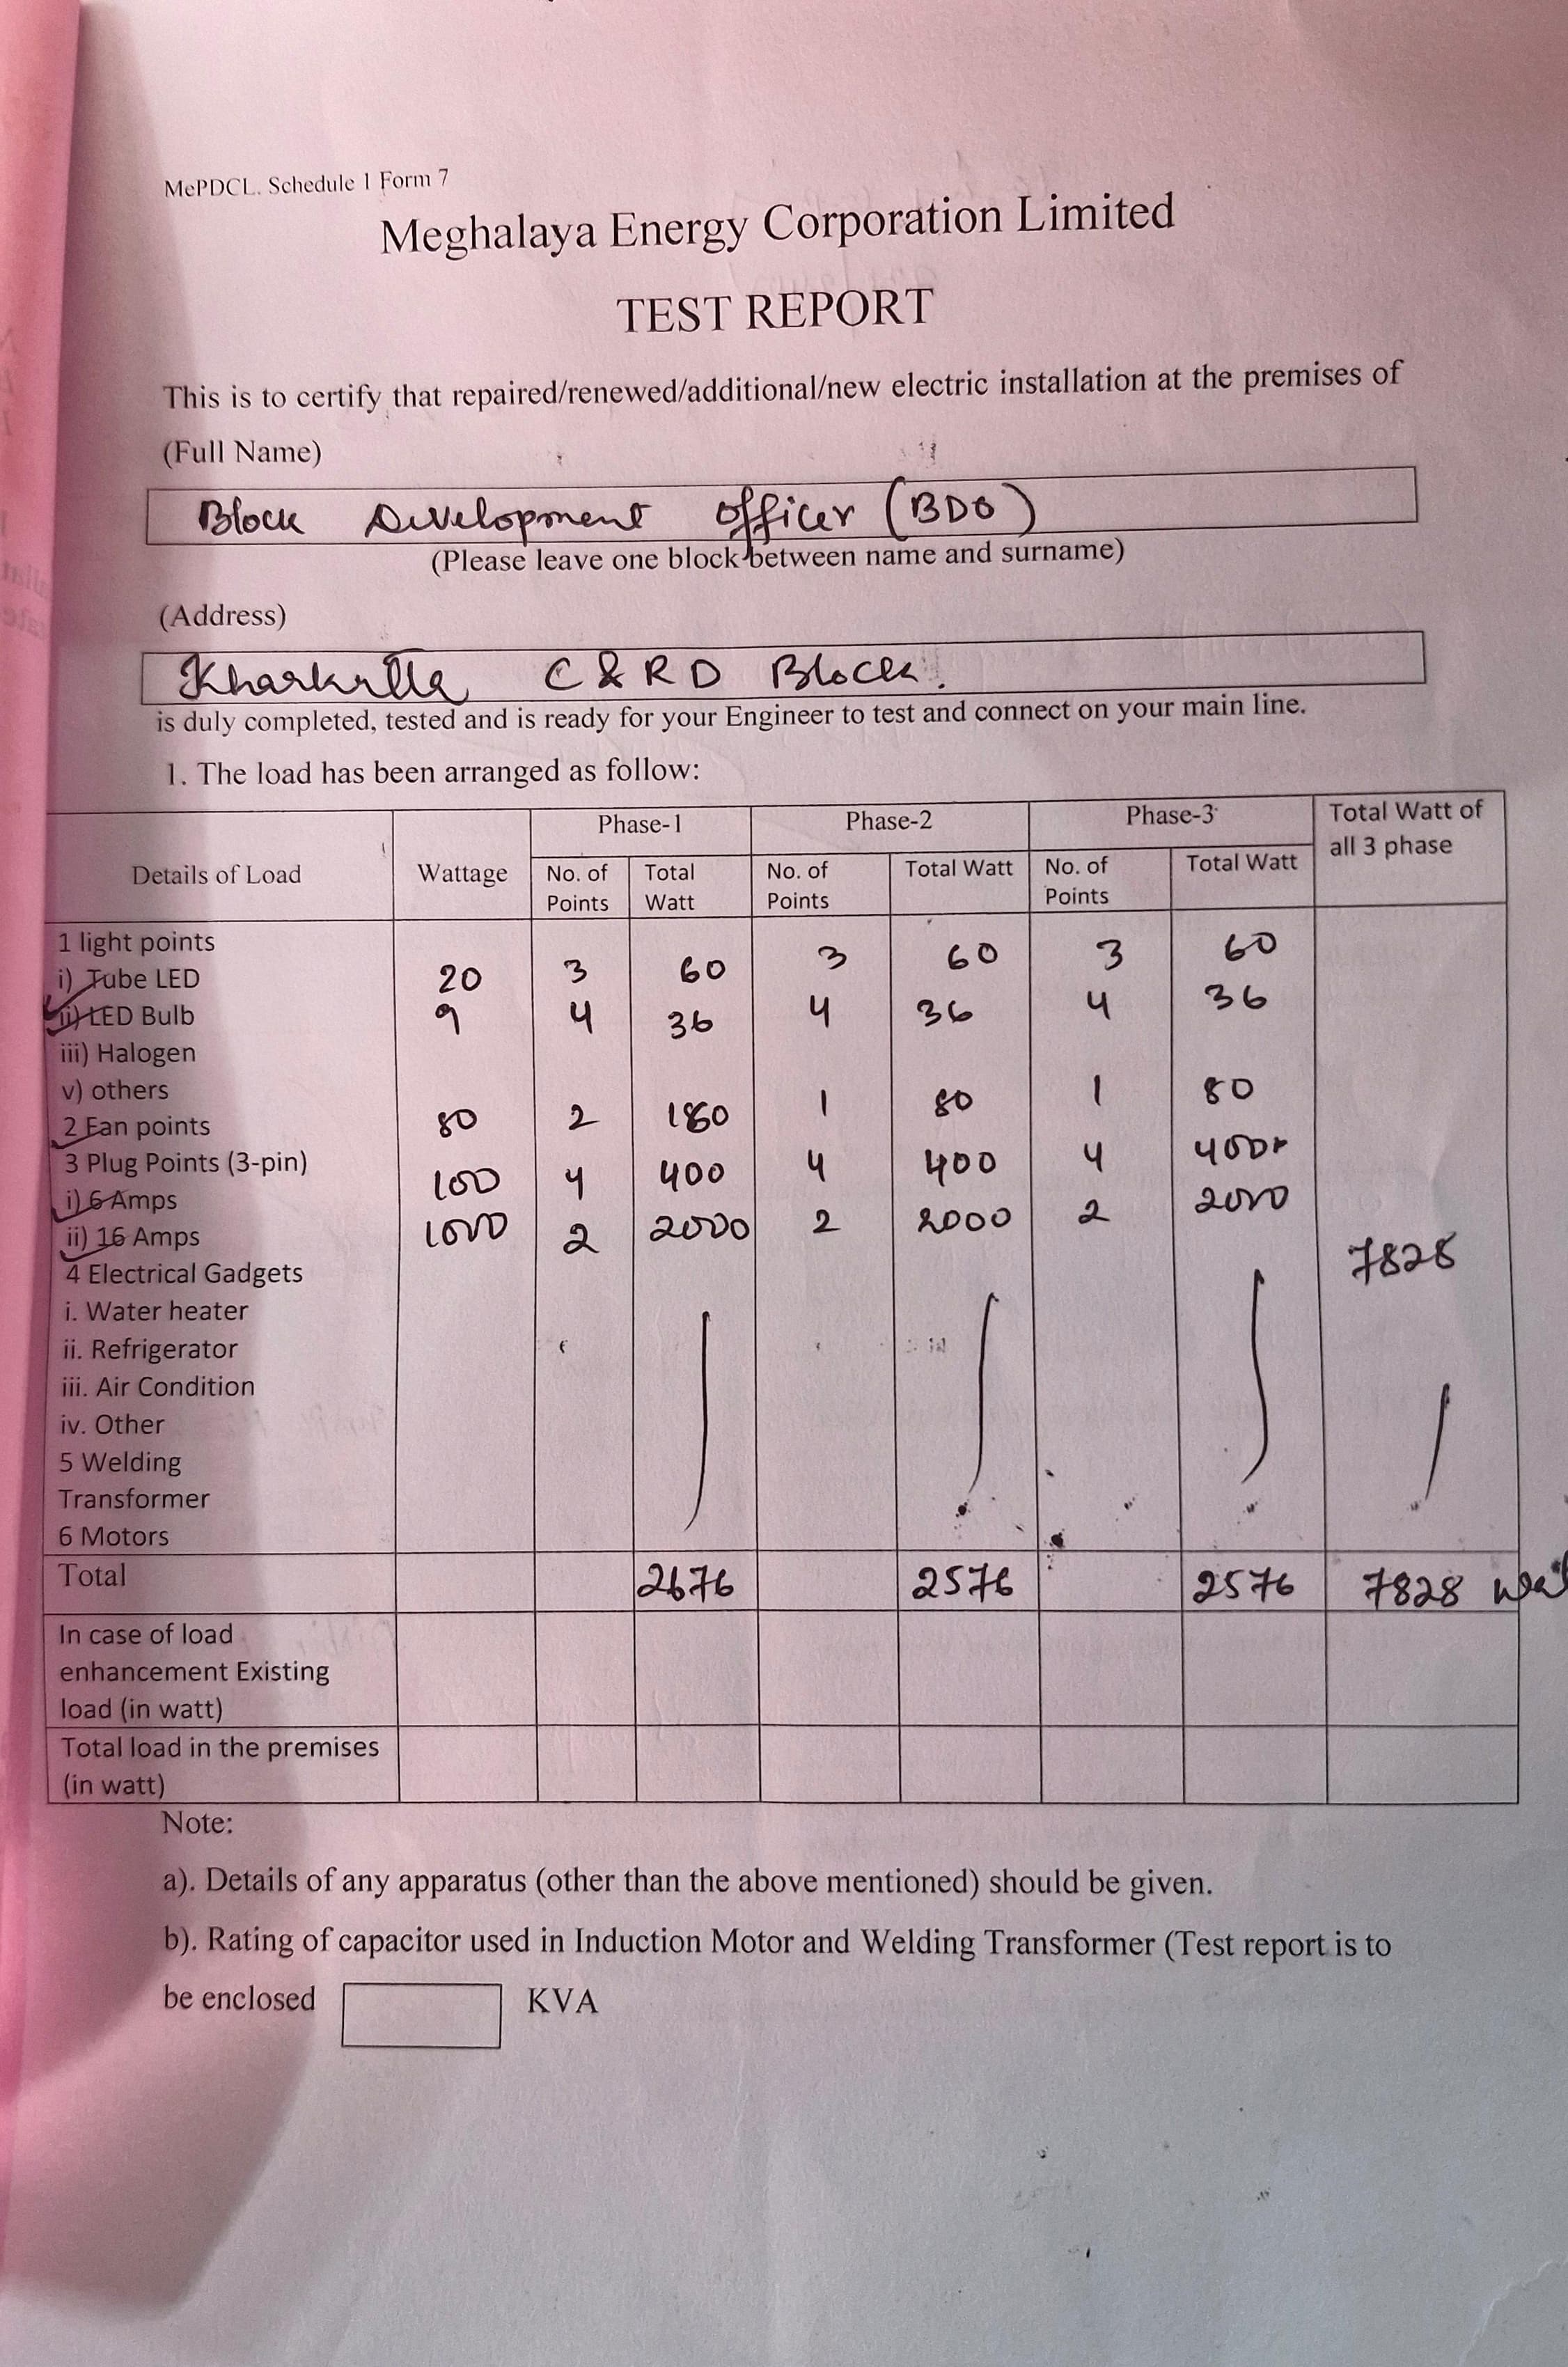 MePDCL. Schedule 1 Form 7
Meghalaya Energy Corporation Limited
TEST REPORT
This is to certify that repaired/renewed/additional/new electric installation at the premises of
(Full Name)
Block Development Officer (BDO)
(Please leave one block between name and surname)
(Address)
Kharkutta C & R D Block.
is duly completed, tested and is ready for your Engineer to test and connect on your main line.
1. The load has been arranged as follow:
Details of Load Wattage Phase-1 Phase-2 Phase-3 Total Watt of all 3 phase
No. of Points Total Watt No. of Points Total Watt No. of Points Total Watt
1 light points
i) Tube LED 20 3 60 3 60 3 60
ii) LED Bulb 9 4 36 4 36 4 36
iii) Halogen
v) others
2 Fan points 80 2 180 1 80 1 80
3 Plug Points (3-pin)
i) 6 Amps 100 4 400 4 400 4 400
ii) 16 Amps 1000 2 2000 2 2000 2 2000
4 Electrical Gadgets 7828
i. Water heater
ii. Refrigerator
iii. Air Condition
iv. Other
5 Welding
Transformer
6 Motors
Total 2676 2576 2576 7828
In case of load
enhancement Existing
load (in watt)
Total load in the premises
(in watt)
Note:
a). Details of any apparatus (other than the above mentioned) should be given.
b). Rating of capacitor used in Induction Motor and Welding Transformer (Test report is to
be enclosed KVA